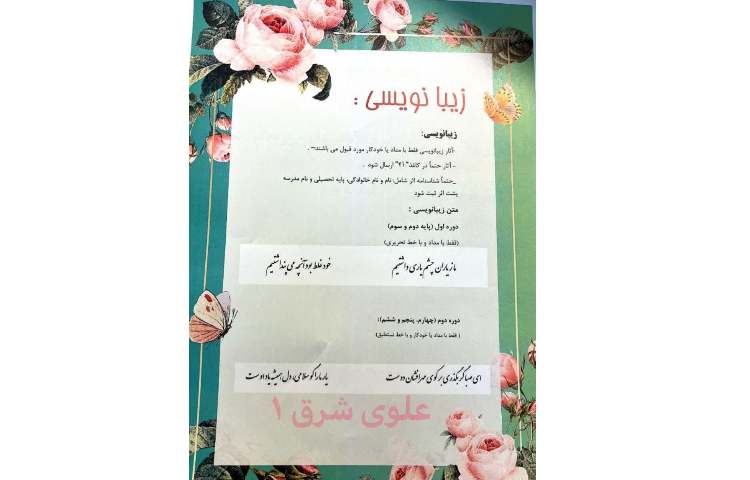 زیبا نویسی :
زیبانویسی:
-آثار زیبانویسی فقط با مداد یا خودکار مورد قبول می باشند- .
- آثار حتماً در کاغذ "۲۱" ارسال شود .
_حتماً شناسنامه اثر شامل: نام و نام خانوادگی، پایه تحصیلی و نام مدرسه
پشت اثر ثبت شود
متن زیبانویسی :
دوره اول (پایه دوم و سوم)
(فقط با مداد و با خط تحریری)
ما ز یاران چشم یاری داشتیم خود غلط بود آنچه می پنداشتیم
دوره دوم (چهارم، پنجم و ششم):
( فقط با مداد یا خودکار و با خط نستعلیق)
ای صبا گر بگذری بر کوی مهرافشان دوست یار ما را گو سلامی، دل همیشه یاد اوست
علوی شرق ۱